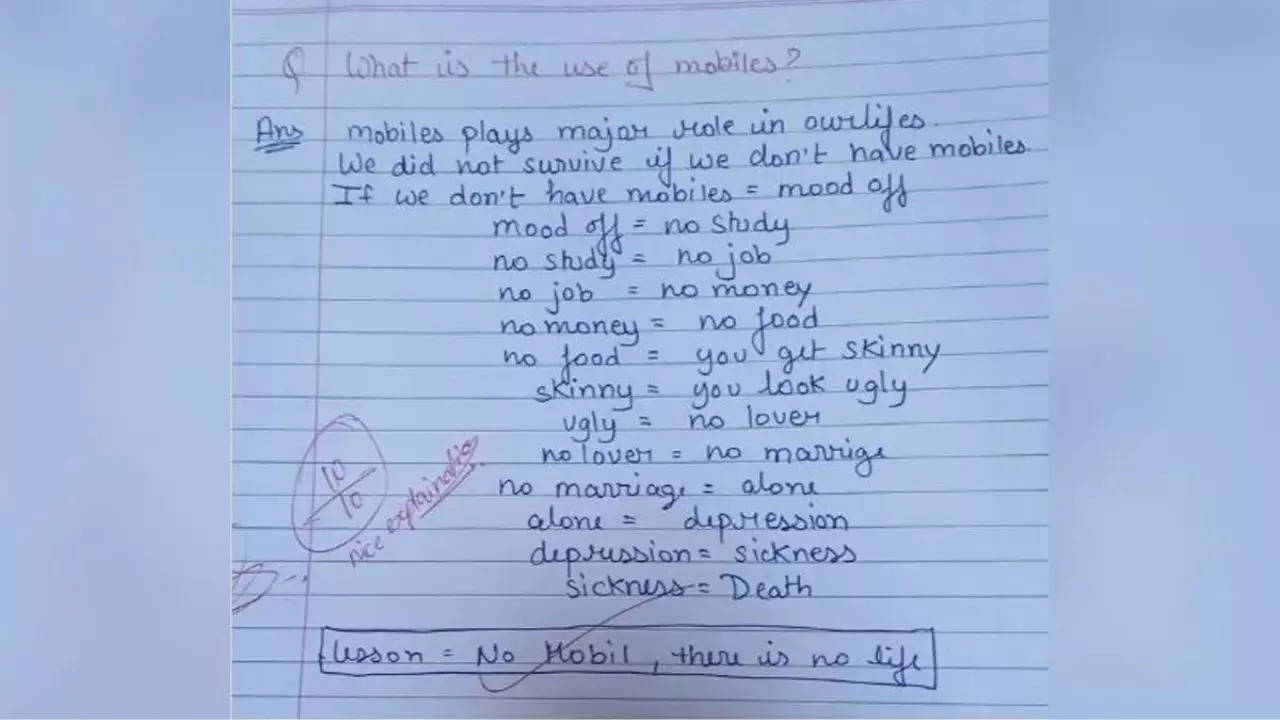 Q What is the use of mobiles?
Ans mobiles plays major role in our lifes.
We did not survive if we don't have mobiles
If we don't have mobiles = mood off
mood off = no study
no study = no job
no job = no money
no money = no food
no food = you get skinny
skinny = you look ugly
ugly = no lover
no lover = no marrige
no marriage = alone
alone = depression
depression = sickness
sickness = Death
10/10
nice explaination
Lesson = No Mobil, there is no life